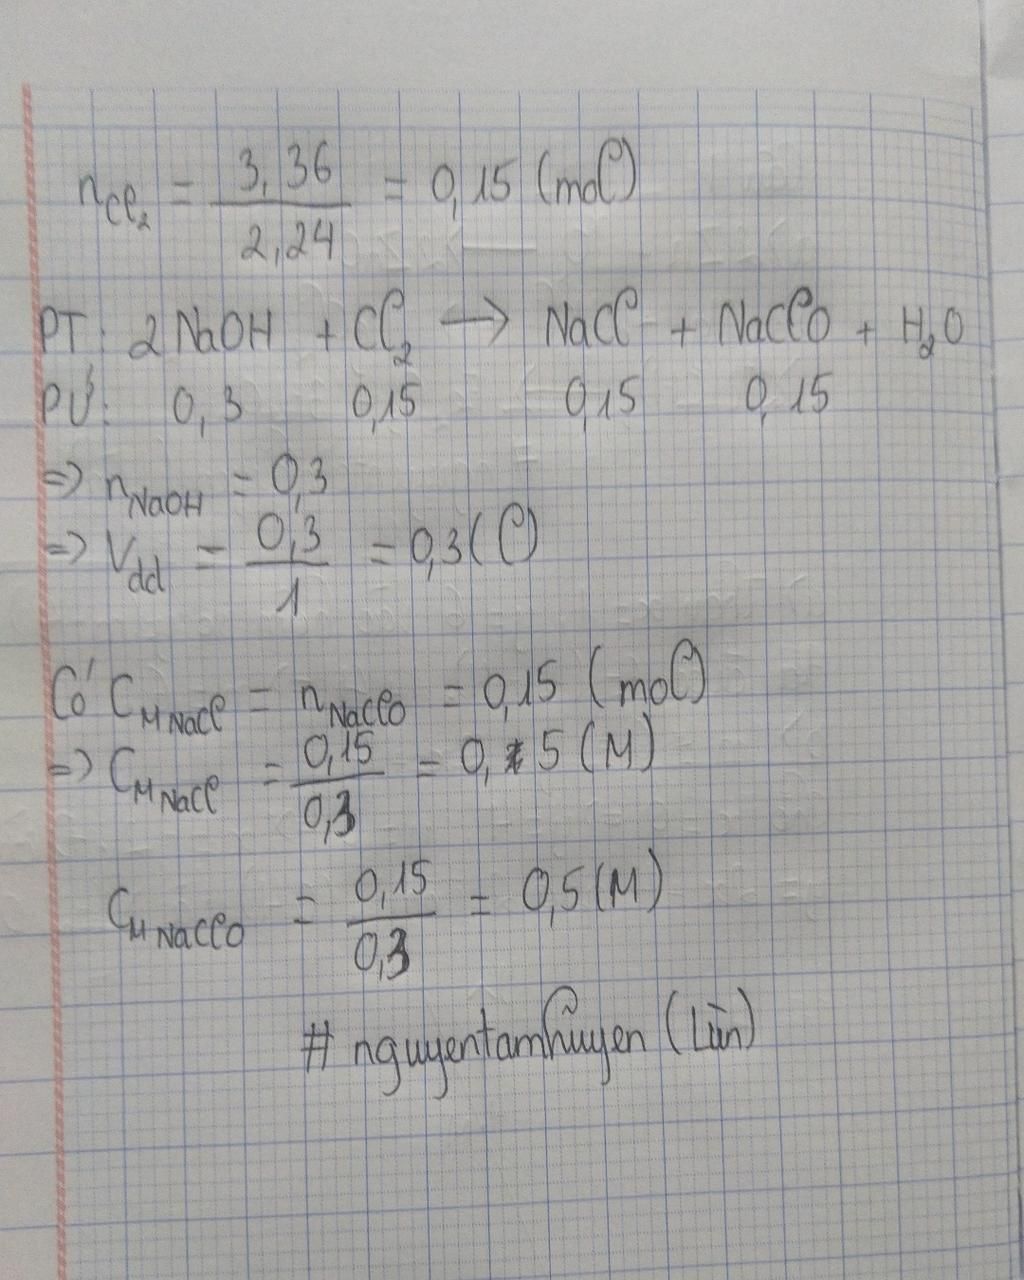 n Cl₂ = 3,36 / 2,24 = 0,15 (mol)
PT: 2 NaOH + Cl₂ → NaCl + NaClO + H₂O
PƯ: 0,3 0,15 0,15 0,15
=> n NaOH = 0,3
=> V dd = 0,3 / 1 = 0,3 (l)
Có C M NaCl = n NaClO = 0,15 (mol)
=> C M NaCl = 0,15 / 0,3 = 0,5 (M)
C M NaClO = 0,15 / 0,3 = 0,5 (M)
# nguyentamhuyen (Lùn)